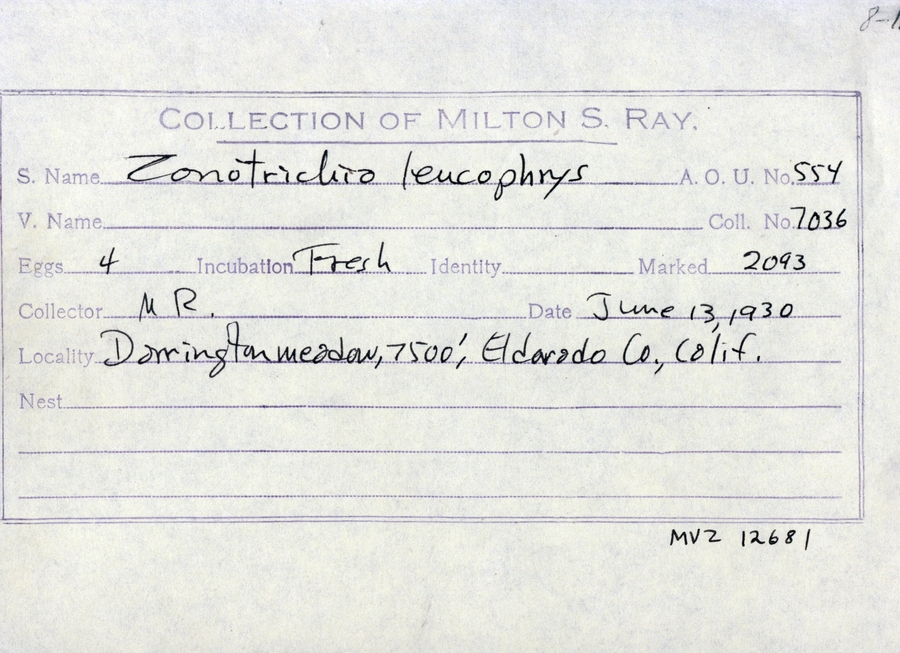 COLLECTION OF MILTON S. RAY.
S. Name Zonotrichia leucophrys A. O. U. No. 554
V. Name Coll. No. 7036
Eggs 4 Incubation Fresh Identity Marked 2093
Collector M R. Date June 13, 1930
Locality Dorrington meadow, 7500', Eldorado Co., Calif.
Nest
MVZ 12681